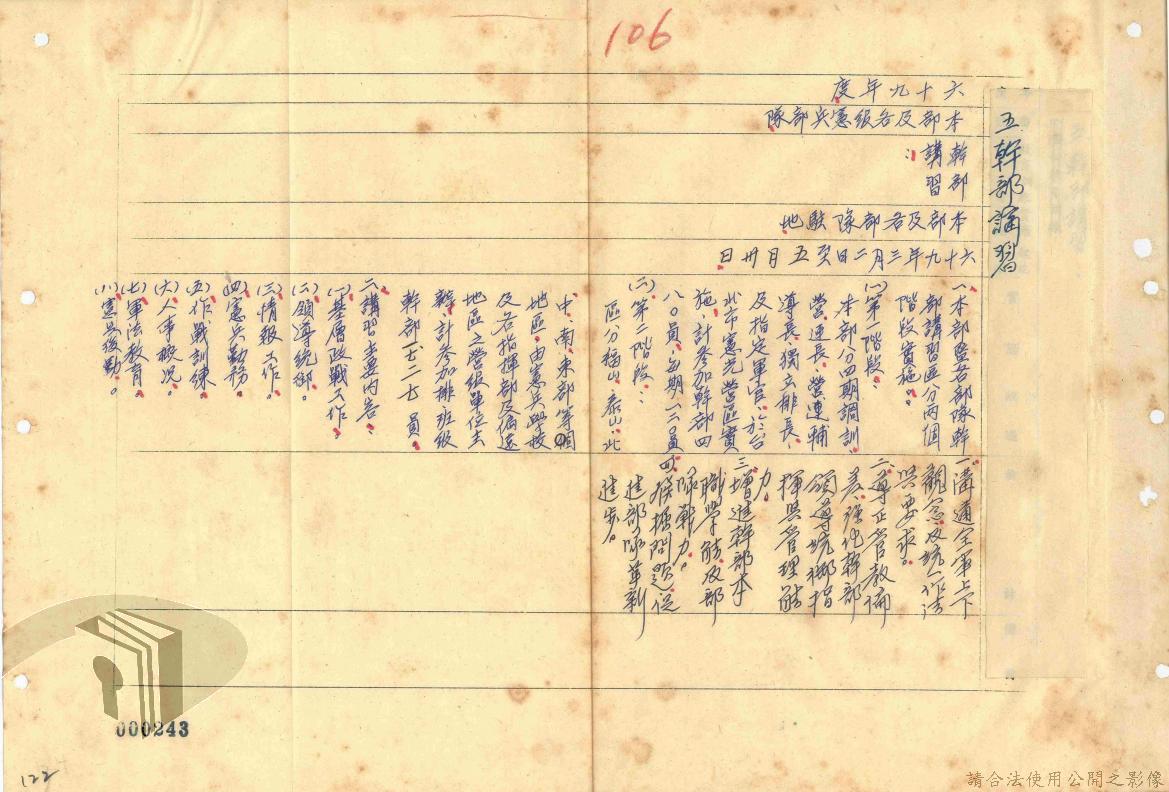 106
五幹部講習
六十九年度
本部及各級憲兵部隊
幹部
講習：
本部及各部隊駐地
六十九年三月二日至五月卅日
一、本部暨各部隊幹
部講習區分兩個
階段實施。
(一)第一階段：
本部分四期調訓，
營連長、營連輔
導長、獨立排長、
及指定軍官，於台
北市憲光營區實
施，計參加幹部四
八○員，每期一二○員。
(二)第二階段：
區分福山、泰山、北、
中、南、東部等個
地區，由憲兵學校
及各指揮部及偏遠
地區之營級單位去
辦，計參加排班級
幹部一七二七員。
二、講習主要內容：
(一)基層政戰工作。
(二)領導統御。
(三)情報工作。
(四)憲兵勤務。
(五)作戰訓練。
(六)人事概況。
(七)軍法教育。
(八)憲兵後勤。
一、溝通全軍上下
觀念及統一作法
與要求。
二、導正管教偏
差，強化幹部
領導統御指
揮與管理能
力。
三、增進幹部本
職學能及部
隊戰力。
四、發掘問題促
進部隊革新
進步。
000243
122
請合法使用公開之影像